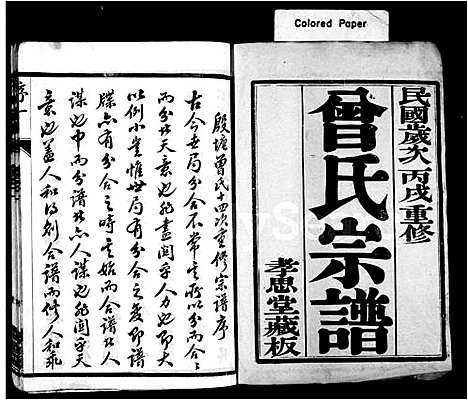 Colored Paper
民國歲次丙戌重修
曾氏宗譜
孝思堂藏板
殷塘曾氏十四次重修宗譜序
古今世局分合不常其所以分而合合
而分此天意也非盡關乎人力也即大
以例小豈惟世局有分合之變即譜
牒亦有分合之時其始而合譜也人
謀也中而分譜也亦人謀也非關乎天
意也蓋人和而合譜而修人和乖
序一